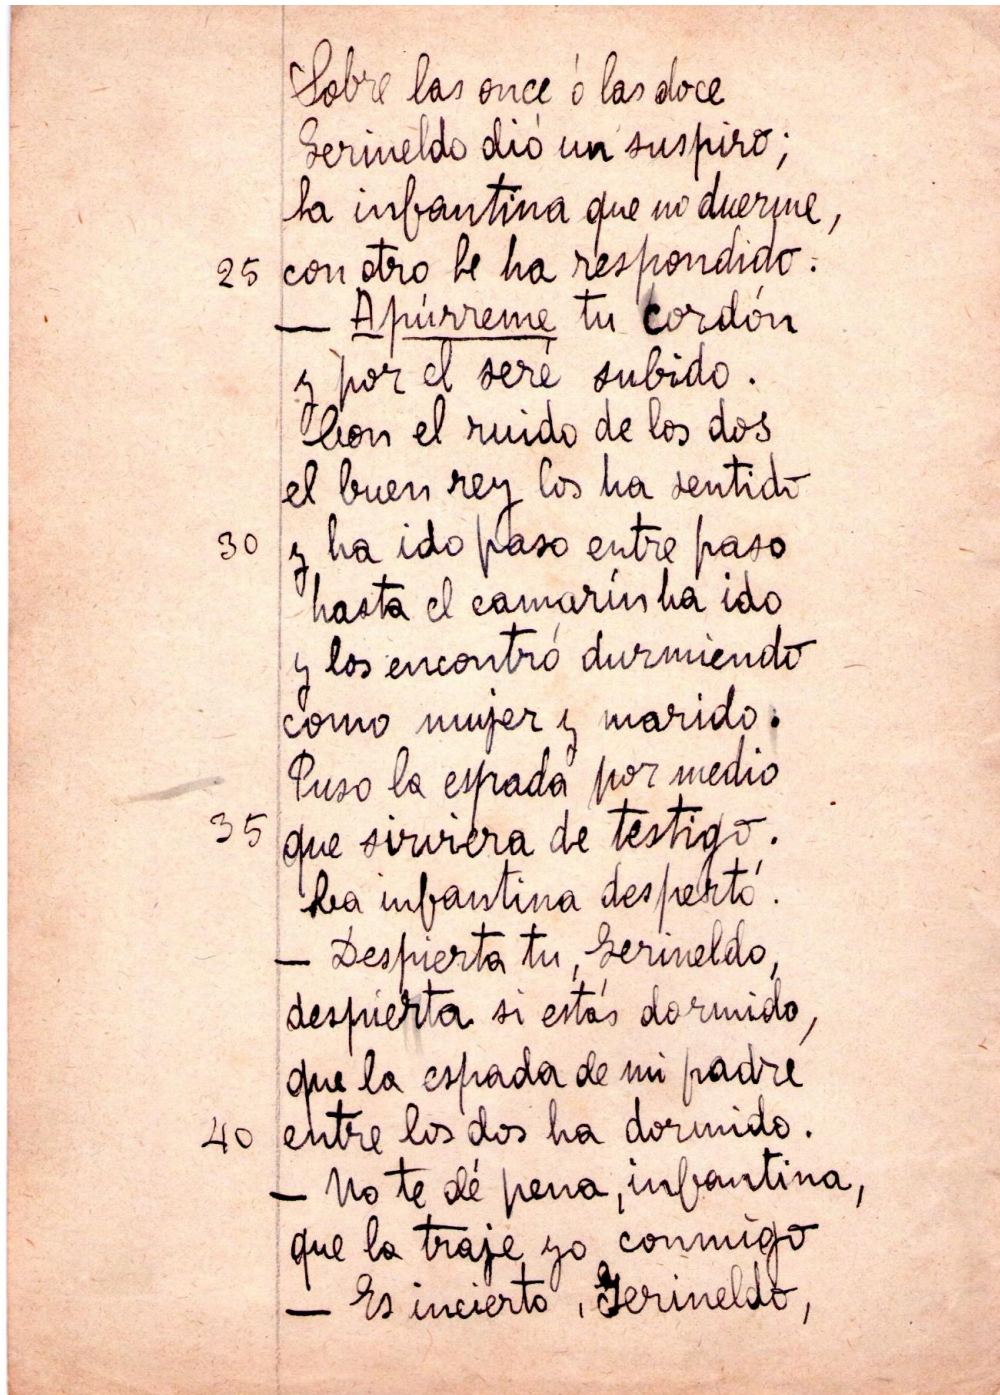 Sobre las once ó las doce
Gerineldo dió un suspiro;
la infantina que no duerme,
25 con otro le ha respondido.
— Apúrreme tu cordón
y por él seré subido.
Con el ruido de los dos
el buen rey los ha sentido
30 y ha ido paso entre paso
hasta el camarín ha ido
y los encontró durmiendo
como mujer y marido.
Puso la espada por medio
35 que sirviera de testigo.
La infantina despertó.
— Despierta tu, Gerineldo,
despierta si estás dormido,
que la espada de mi padre
40 entre los dos ha dormido.
— No te dé pena, infantina,
que la traje yo conmigo
— Es incierto, Gerineldo,